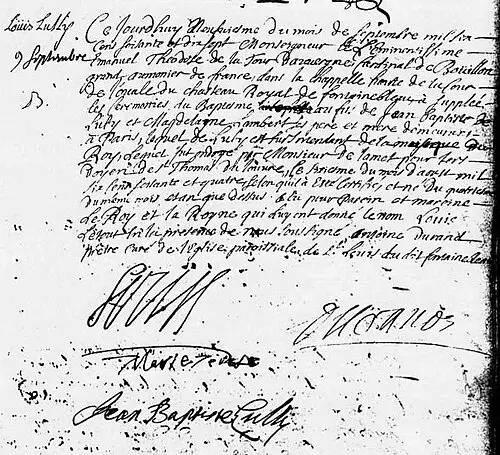 Louis Lully
9 Septembre
B
Ce Jourdhuy Neufiesme du mois de septembre mil six
cens soixante et dix sept Monseigneur Eminentissime
Emanuel Theodose de la Tour Dauvergne Cardinal de Bouillon
grand aumonier de france dans la chappelle de la Cour
de louale du chasteau Royal de fontainebleau a supplee
les ceremonies du Baptesme au fils de Jean Baptiste de
Lully et Magdelayne Lambert ses pere et mere demeurans
a Paris, lequel de Lully est surintendant de la musique du
Roy, lequel fut ondoyé par Monsieur de lamet pour lors
doyen de St Thomas du louvre, le sixieme du mois d'aoust mil
six cens soixante et quatre, selon quil a Esté Certifié, et né du quatre
du mesme mois et an que dessus, a eu pour Parein et mareine
Le Roy et la Royne qui luy ont donné le nom Louis
Le tout faict en presence de nous soubsigné antoine Durand
prestre Curé de l'Eglise paroissiale de St Louis du dit fontainebleau
Louis
Durand
Marie Terese
Jean Baptiste Lully